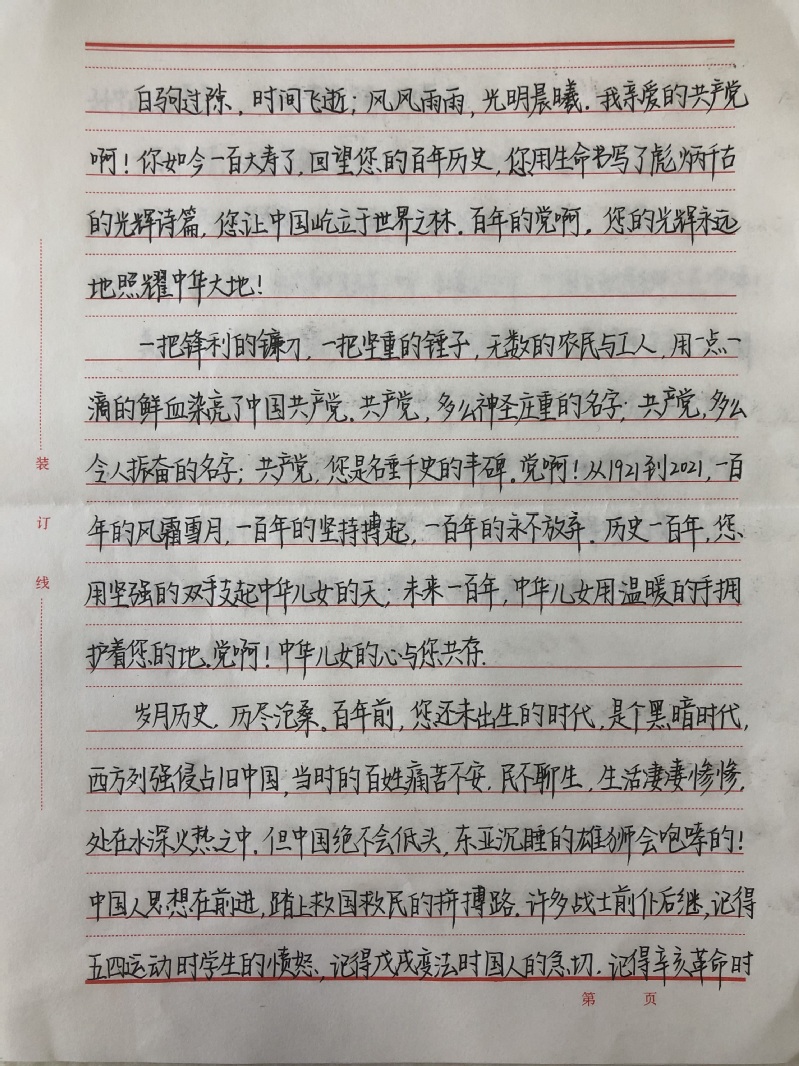 白驹过隙，时间飞逝；风风雨雨，光明晨曦。我亲爱的共产党
啊！你如今一百大寿了，回望您的百年历史，您用生命书写了彪炳千古
的光辉诗篇，您让中国屹立于世界之林。百年的党啊，您的光辉永远
地照耀中华大地！
一把锋利的镰刀，一把坚重的锤子，无数的农民与工人，用一点一
滴的鲜血染亮了中国共产党。共产党，多么神圣庄重的名字；共产党，多么
令人振奋的名字；共产党，您是名垂千史的丰碑。党啊！从1921到2021，一百
年的风霜雪月，一百年的坚持搏起，一百年的永不放弃。历史一百年，您
用坚强的双手支起中华儿女的天；未来一百年，中华儿女用温暖的手拥
护着您的地。党啊！中华儿女的心与您共存。
岁月历史，历尽沧桑。百年前，您还未出生的时代，是个黑暗时代，
西方列强侵占旧中国，当时的百姓痛苦不安，民不聊生，生活凄凄惨惨，
处在水深火热之中。但中国绝不会低头，东亚沉睡的雄狮会咆嗥的！
中国人思想在前进，踏上救国救民的拼搏路。许多战士前仆后继，记得
五四运动时学生的愤怒，记得戊戌变法时国人的急切。记得辛亥革命时
装
订
线
第 页